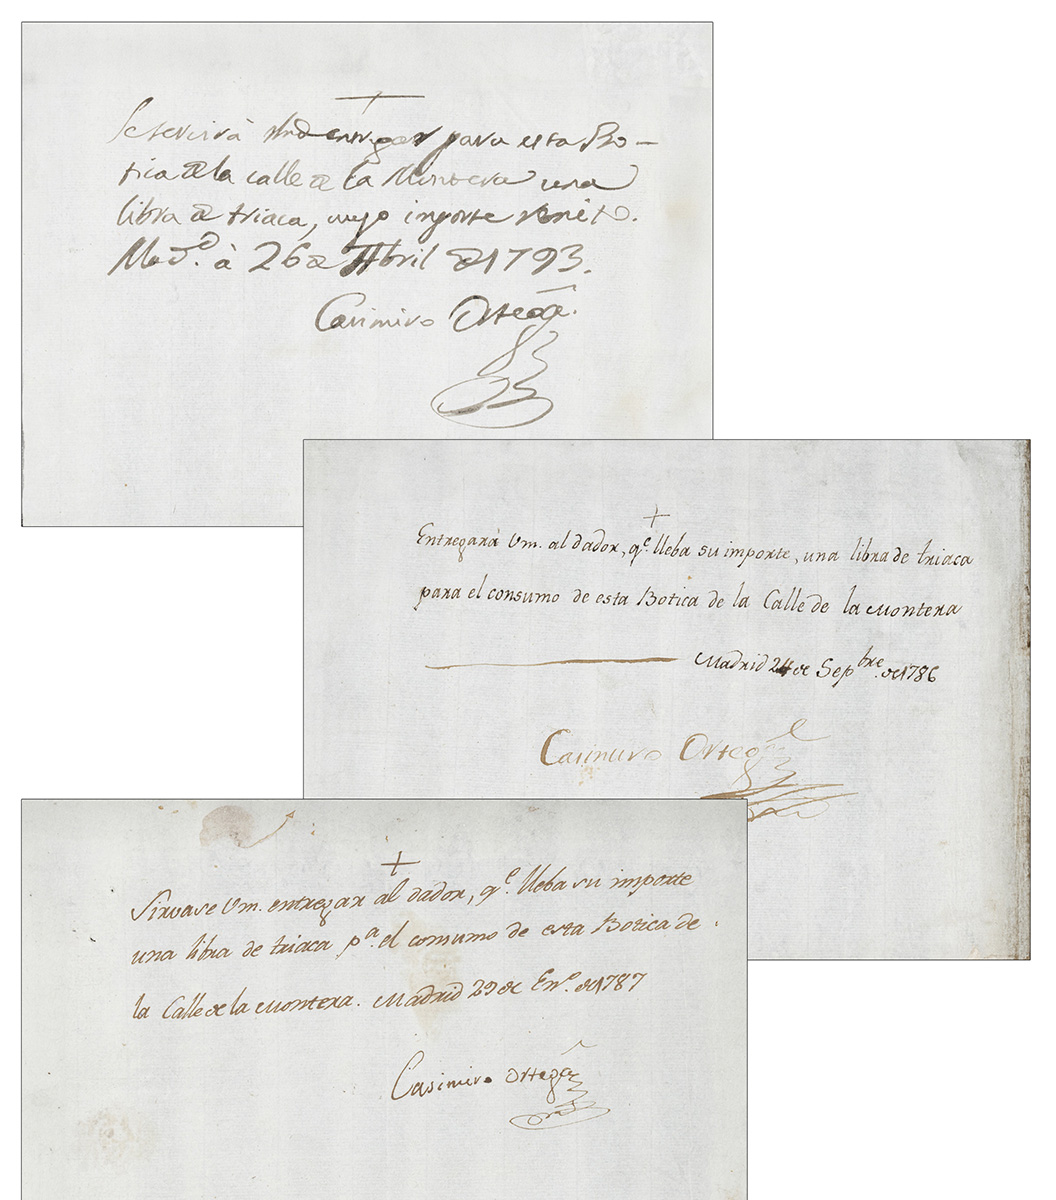 Se servirà Vmd entregar para esta Bo-
tica de la calle de la Montera una
libra de triaca, cuyo importe remito.
Mad.d à 26 de Abril de 1793.
Casimiro Ortega.
Entregarà Vm. al dador, q.e lleba su importe, una libra de triaca
para el consumo de esta Botica de la Calle de la Montera
Madrid 24 de Sepbre. de 1786
Casimiro Ortega
Sirvase Vm. entregar al dador, q.e lleba su importe
una libra de triaca p.a el consumo de esta Botica de
la Calle de la Montera. Madrid 29 de En.o de 1787
Casimiro Ortega